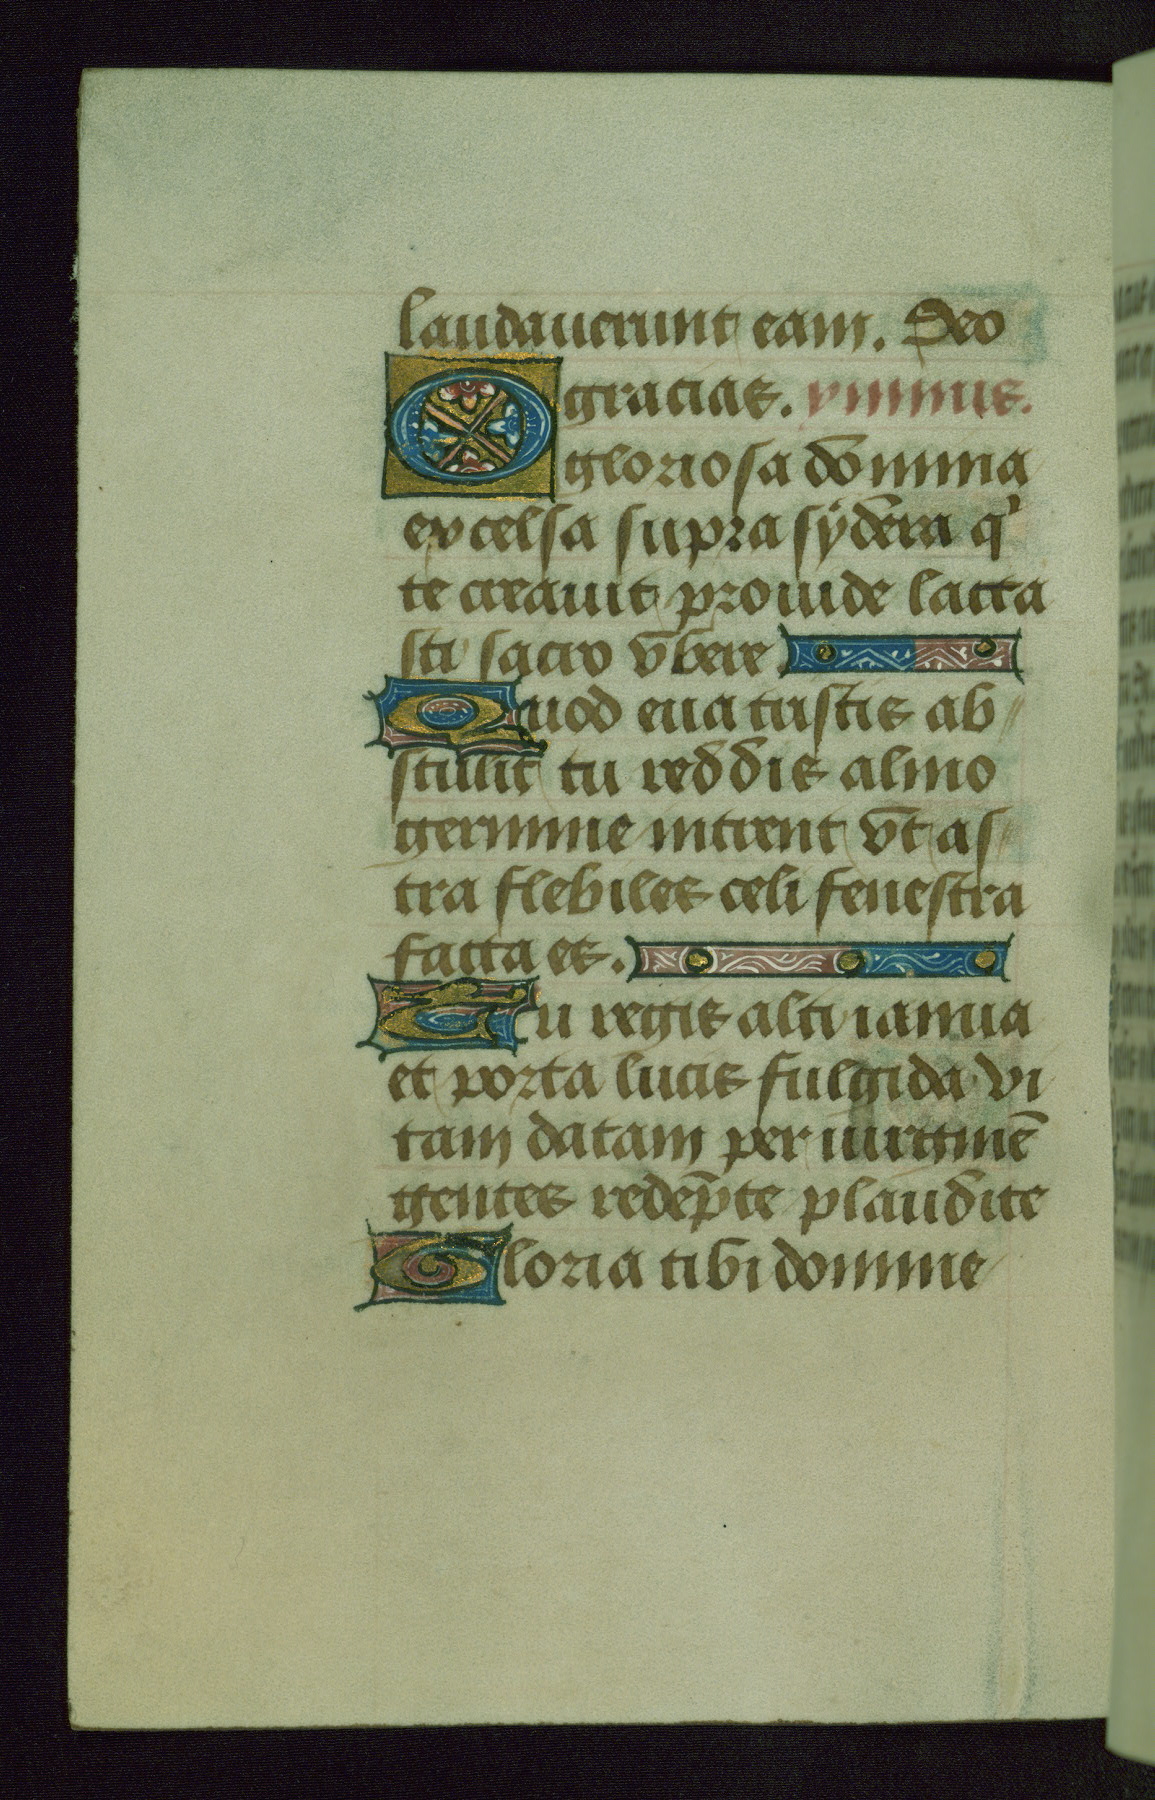 laudauerunt eam. Deo
gracias. ymnus.
O gloriosa domina
excelsa supra sydera q'
te creauit prouide lacta
sti sacro vbere
Quod eua tristis ab
stulit tu reddis almo
germine intrent vt as
tra flebiles celi fenestra
facta es.
Tu regis alti ianua
et porta lucis fulgida vi
tam datam per uirginē
gentes redēpte plaudite
Gloria tibi domine